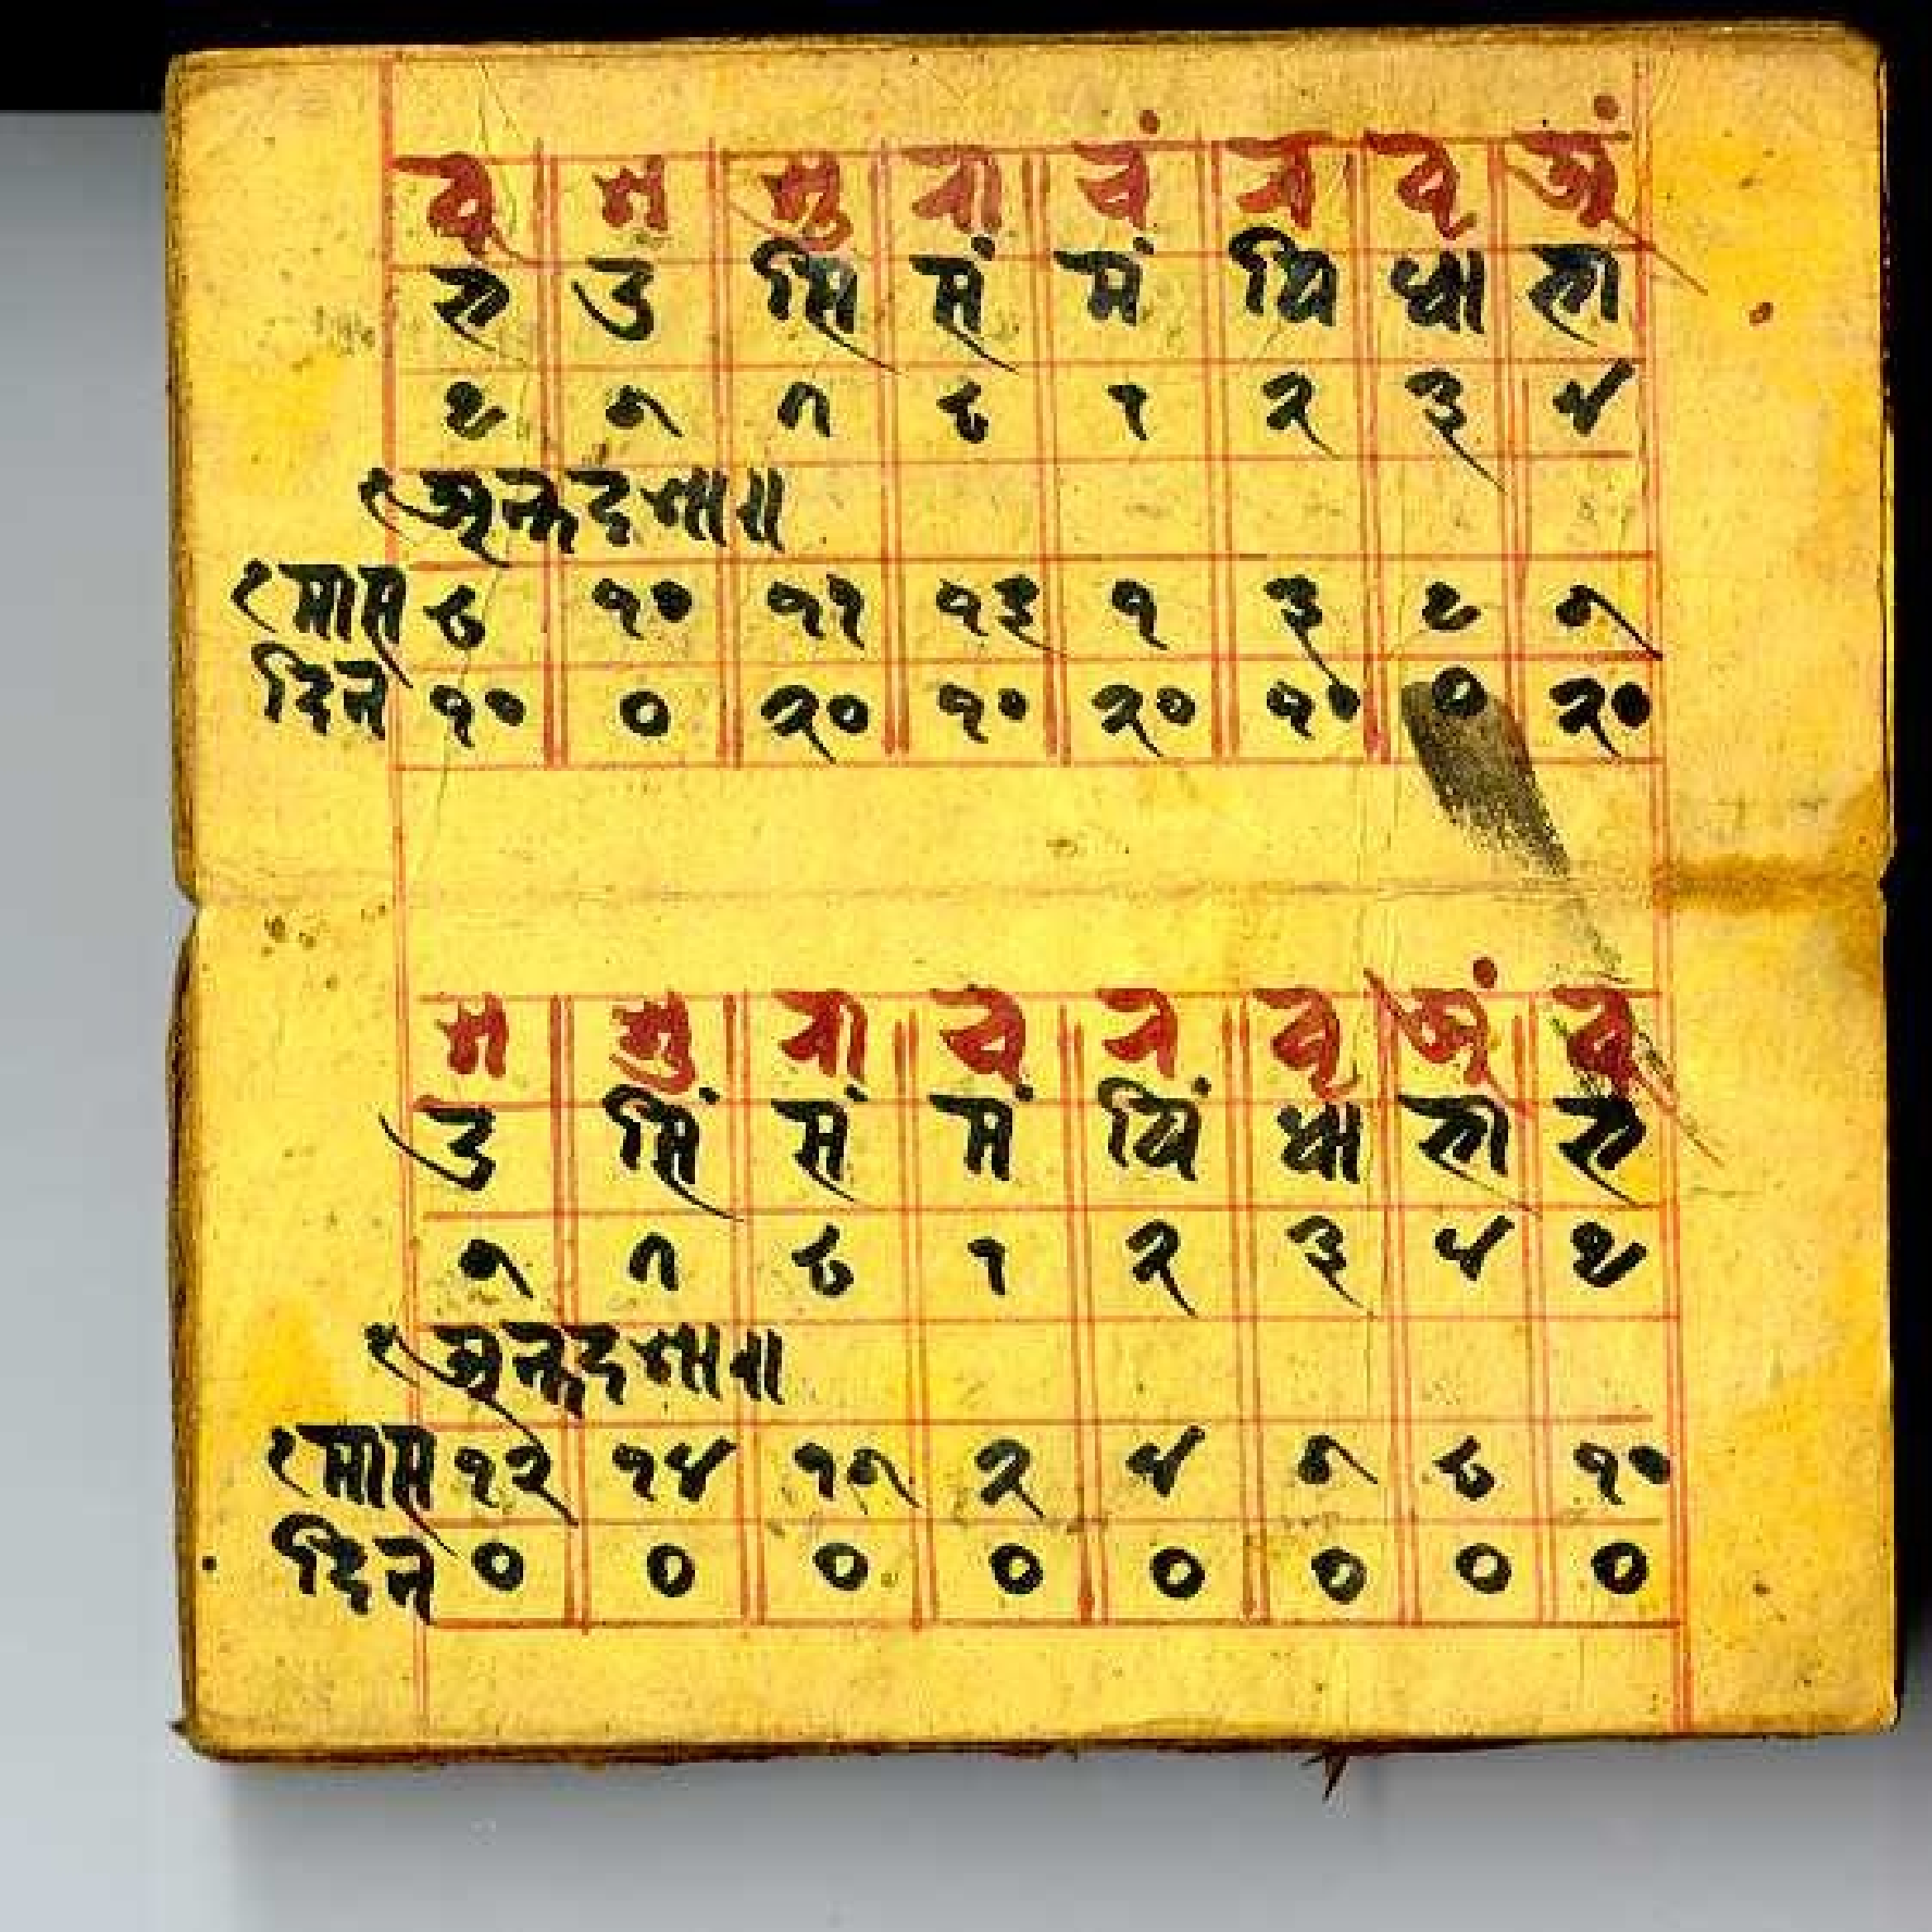 बु श शु रा चं र बृ अं
भ उ सि सं मं पि धा भ्रा
५ ६ ७ ८ १ २ ३ ४
अन्तर्दशा॥
मास ८ १० ११ १३ १ ३ ५ ६
दिन १० ० २० १० २० १० ० २०
श शु रा च र बृ अं बु
उ सिं सं मं पिं धा भ्रा भ
६ ७ ८ १ २ ३ ४ ५
अन्तर्दशा॥
मास १२ १४ १६ २ ४ ६ ८ १०
दिन ० ० ० ० ० ० ० ०